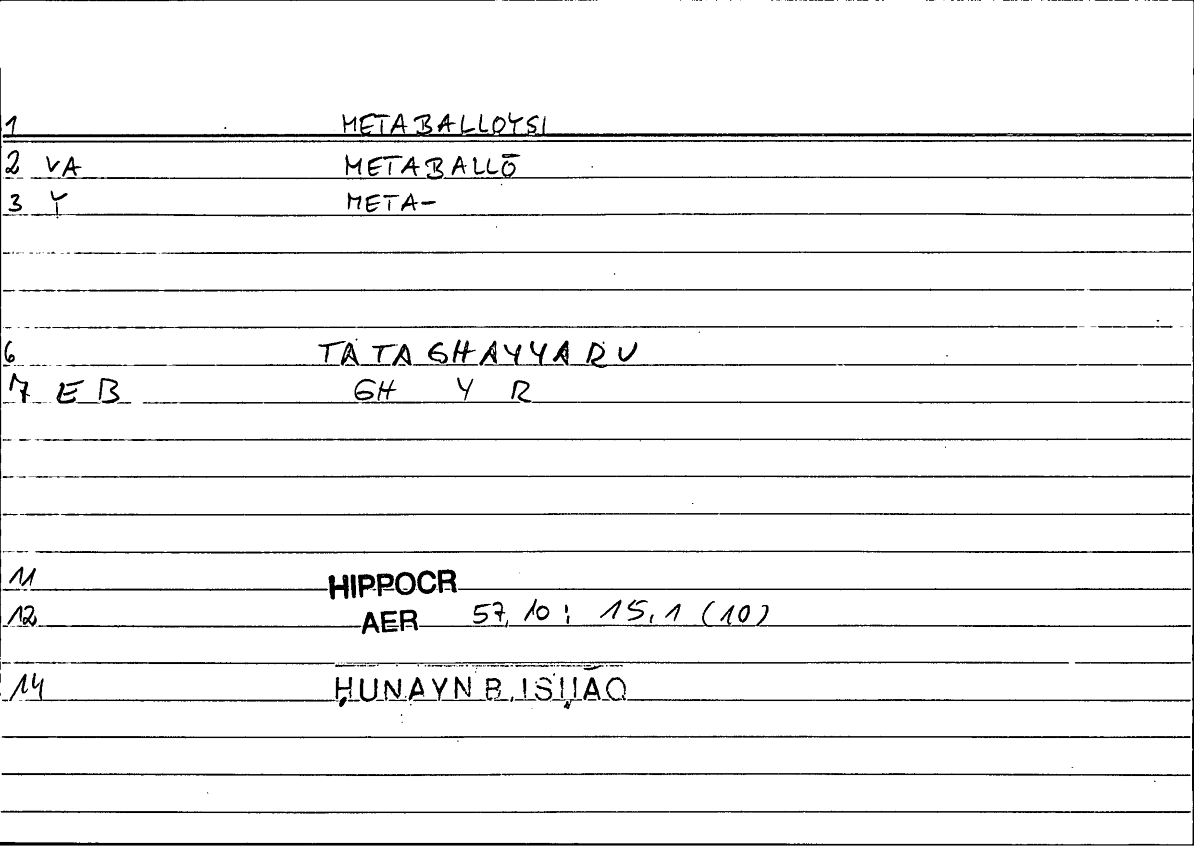 1 METABALLOYSI
2 VA METABALLŌ
3 Y META-
6 TATAGHAYYARU
7 EB GH Y R
11 HIPPOCR
12 AER 57,10; 15,1 (10)
14 ḤUNAYN B. ISḤĀQ